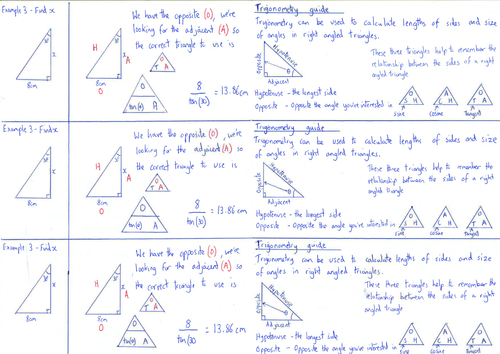 Example 3 - Find x
30°
x
8cm
H
30°
x A
8cm
O
We have the opposite (O), we're
looking for the adjacent (A) so
the correct triangle to use is
O
T A
O
tan(θ) A
8
tan(30) = 13.86cm
Trigonometry guide
Trigonometry can be used to calculate lengths of sides and size
of angles in right angled triangles.
Opposite
Hypotenuse
θ
Adjacent
These three triangles help to remember the
relationship between the sides of a right
angled triangle
Hypotenuse - the longest side
Opposite - Opposite the angle you're interested in
O
S H
A
C H
O
T A
sine
cosine
Tangent
Example 3 - Find x
30°
x
8cm
H
30°
x A
8cm
O
We have the opposite (O), we're
looking for the adjacent (A) so
the correct triangle to use is
O
T A
O
tan(θ) A
8
tan(30) = 13.86cm
Trigonometry guide
Trigonometry can be used to calculate lengths of sides and size
of angles in right angled triangles.
Opposite
Hypotenuse
θ
Adjacent
These three triangles help to remember the
relationship between the sides of a right
angled triangle
Hypotenuse - the longest side
Opposite - Opposite the angle you're interested in
O
S H
A
C H
O
T A
sine
cosine
Tangent
Example 3 - Find x
30°
x
8cm
H
30°
x A
8cm
O
We have the opposite (O), we're
looking for the adjacent (A) so
the correct triangle to use is
O
T A
O
tan(θ) A
8
tan(30 = 13.86cm
Trigonometry guide
Trigonometry can be used to calculate lengths of sides and size
of angles in right angled triangles.
Opposite
Hypotenuse
θ
Adjacent
These three triangles help to remember the
relationship between the sides of a right
angled triangle
Hypotenuse - the longest side
Opposite - Opposite the angle you're interested in
O
S H
A
C H
O
T A
sine
cosine
Tangent